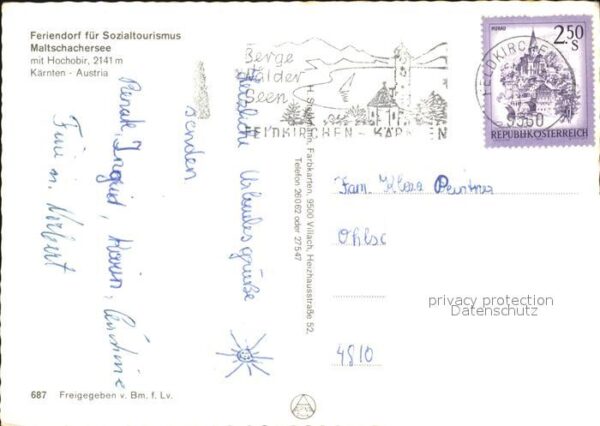 Feriendorf für Sozialtourismus
Maltschachersee
mit Hochobir, 2141 m
Kärnten - Austria
Berge
Wälder
Seen
FELDKIRCHEN - KÄRNTEN
FELDKIRCHEN
9560
MURAU
2.50
S
REPUBLIK ÖSTERREICH
Herzliche Urlaubsgrüße
senden
Renate, Ingrid, Karin,
Fini u. Norbert
Farbkarten, 9500 Villach, Heizhausstraße 52,
Telefon 26062 oder 27547
Fam.
4810
privacy protection
Datenschutz
687 Freigegeben v. Bm. f. Lv.